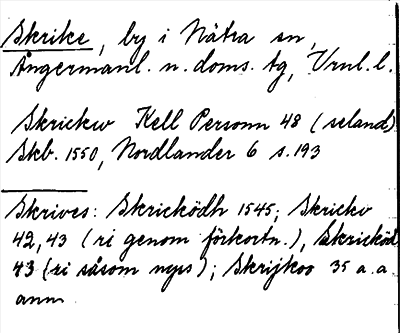 Skrike, by i Nätra sn,
Ångermanl. n. doms. tg, Vrnl. l.
Skrickw Kell Personn 48 (seland)
Skb. 1550, Nordlander 6 s. 193
Skrives: Skricködh 1545; Skrickv
42, 43 (ri genom förkortn.), Skricköd
43 (ri såsom nyss); Skrijkoo 35 a.a
anm